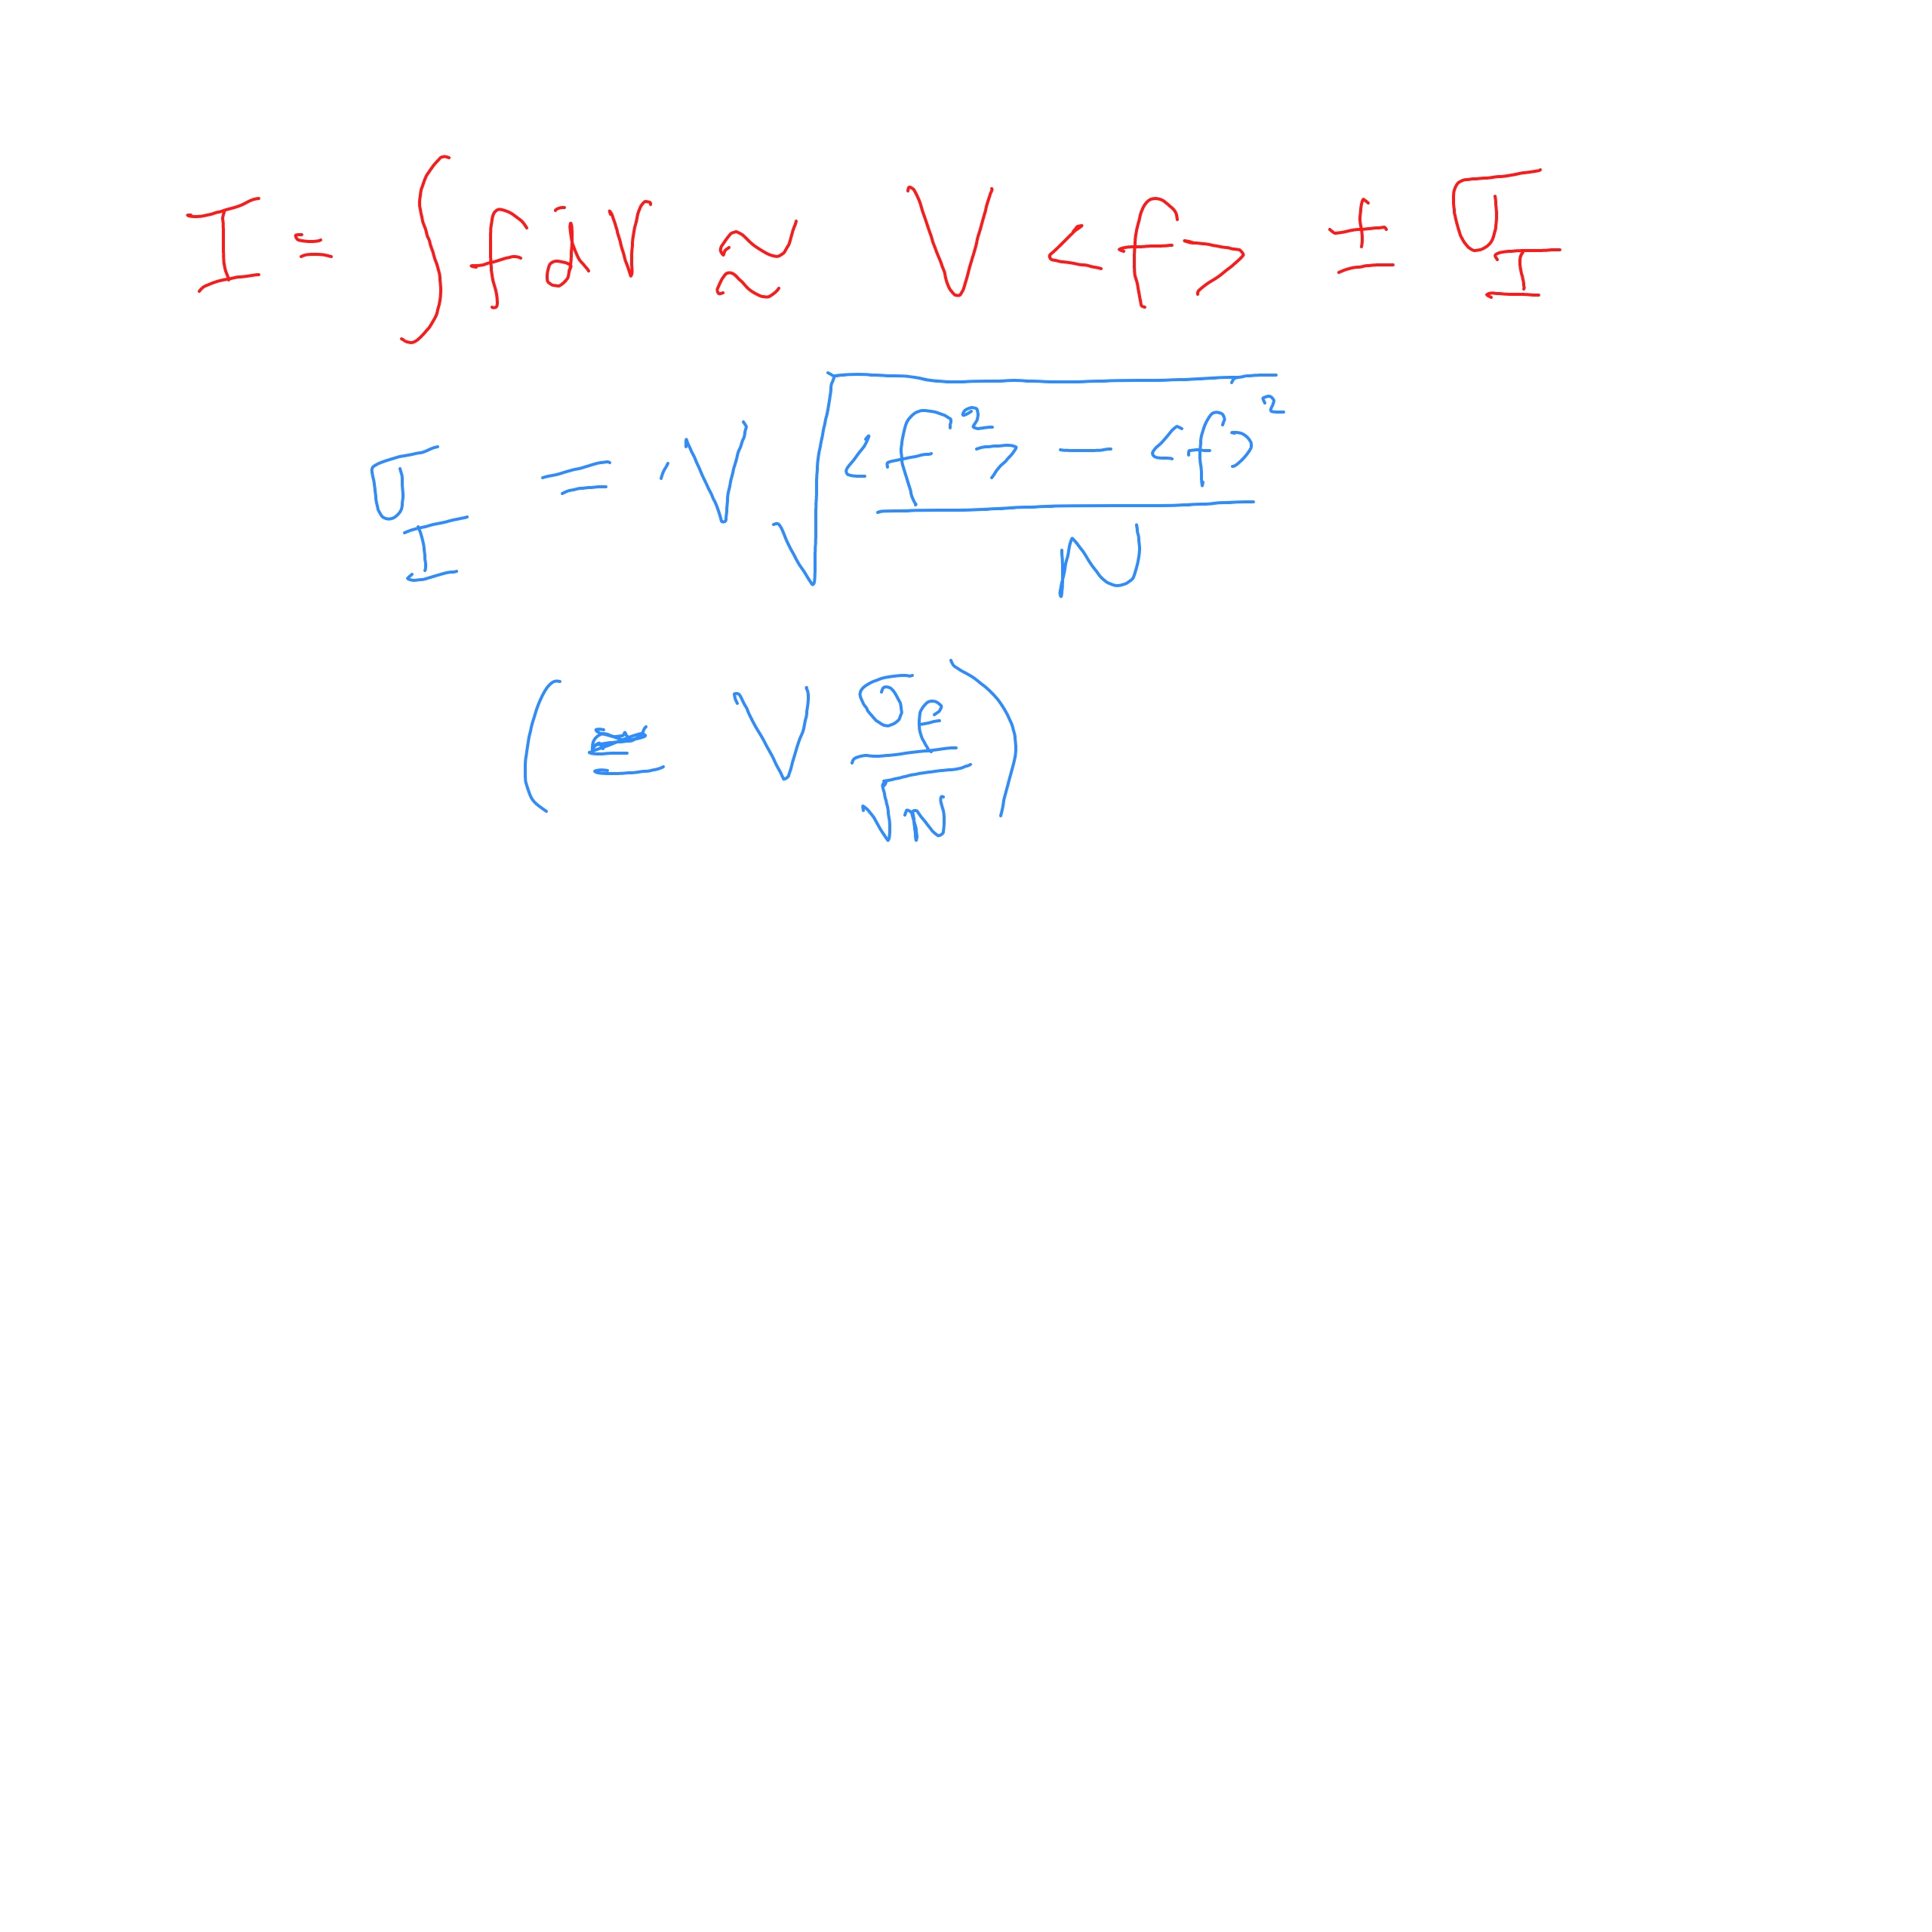 I = ∫ f dV ≈ V <f> ± σ_I
σ_I = V √((<f²> - <f>²)/N)
(= V σ_f/√N)